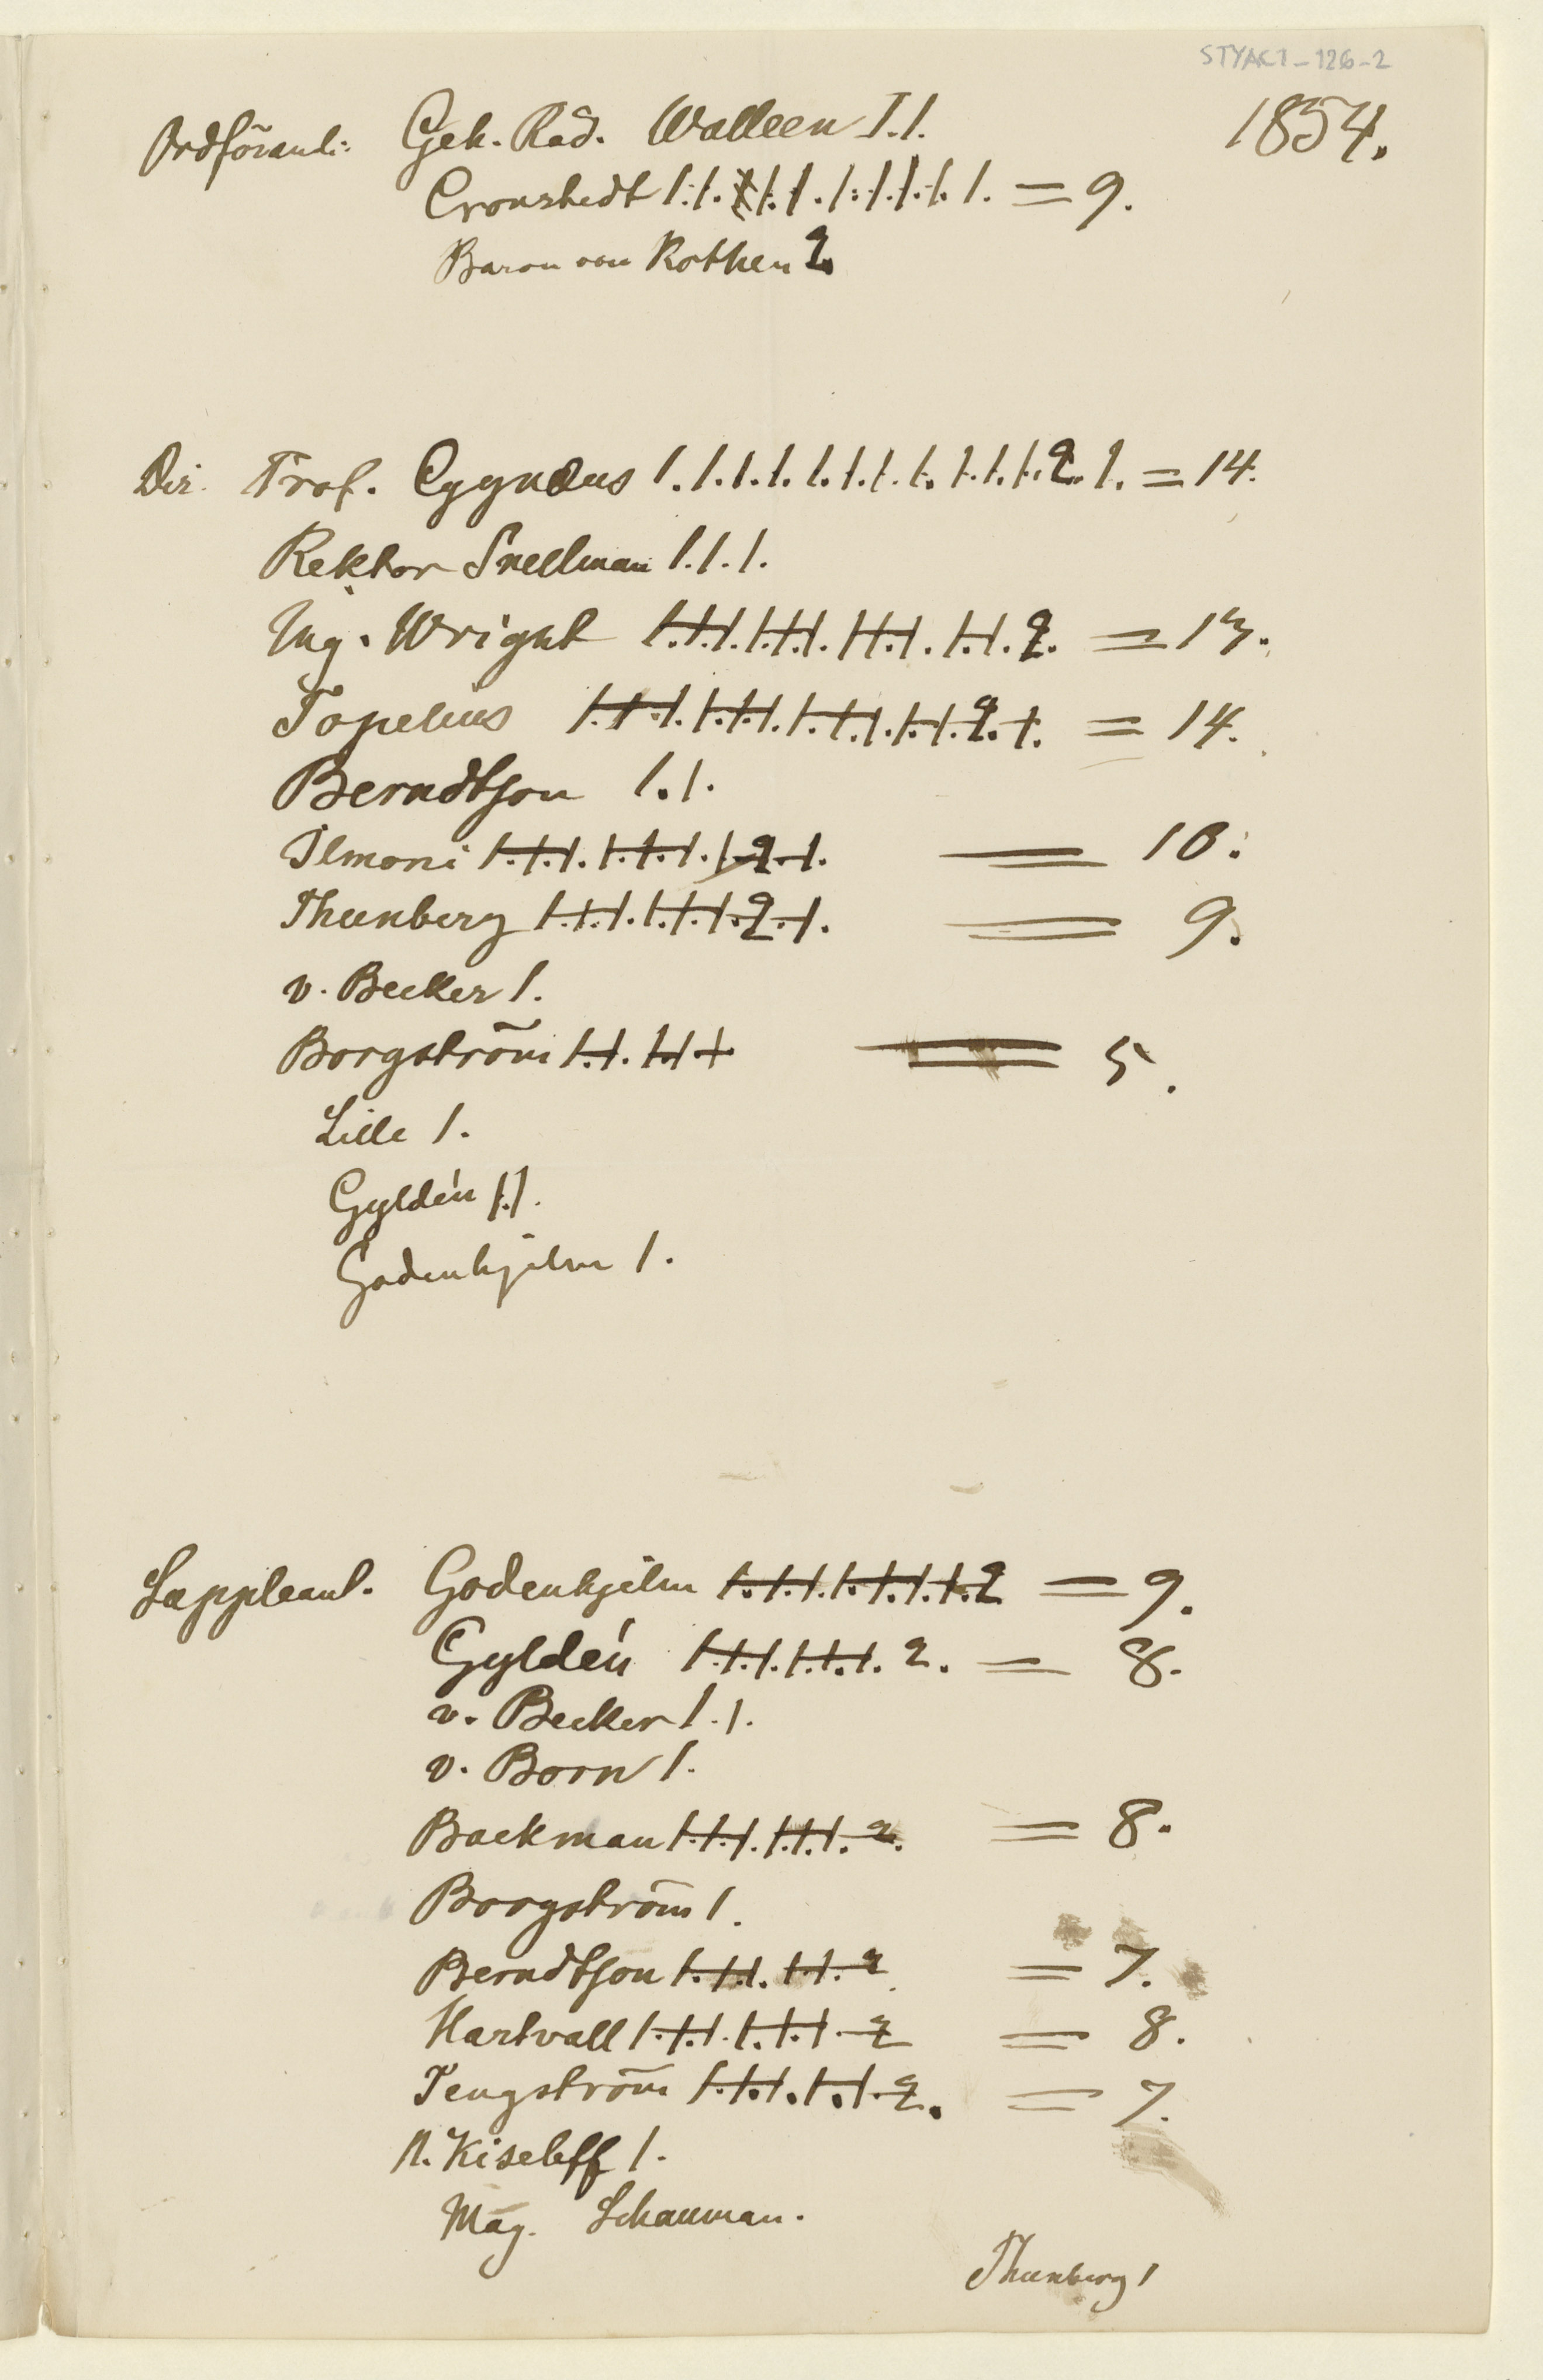 STYAKT-126-2
1854.
Ordförand: Geh. Råd. Walleen 1.1.
Cronstedt 1.1.1.1.1.1.1.1.1. = 9.
Baron von Kothen 2.
Dir. Prof. Cygnæus 1.1.1.1.1.1.1.1.1.1.1.2.1. = 14.
Rektor Snellman 1.1.1.
Ing. Wright 1.1.1.1.1.1.1.1.1.1.1.2. = 13.
Topelius 1.1.1.1.1.1.1.1.1.1.1.2.1. = 14.
Berndtson 1.1.
Ilmoni 1.1.1.1.1.1.1.2.1. = 10.
Thunberg 1.1.1.1.1.1.2.1. = 9.
v. Becker 1.
Borgström 1.1.1.1.1 = 5.
Lille 1.
Gyldén 1.1.
Godenhjelm 1.
Suppleant. Godenhjelm 1.1.1.1.1.1.1.2 = 9.
Gyldén 1.1.1.1.1.1.2. = 8.
v. Becker 1.1.
v. Born 1.
Backman 1.1.1.1.1.1.2. = 8.
Borgström 1.
Berndtson 1.1.1.1.1.2 = 7.
Hartvall 1.1.1.1.1.1.2 = 8.
Tengström 1.1.1.1.1.2. = 7.
N. Kiseleff 1.
Mag. Schauman.
Thunberg 1